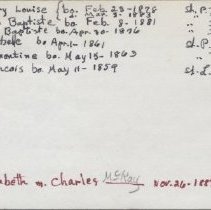 ry Louise { bo. Feb. 23-1878 st. P.
da. Mar. 3-1883
Baptiste bo. Feb. 8-1881
Baptiste bo. Apr. 30-1876
bo. Apr. 1-1861
entine bo. May 15-1863
ancois bo. May 11-1859 st. L.
abeth m. Charles McKay Nov. 26-188